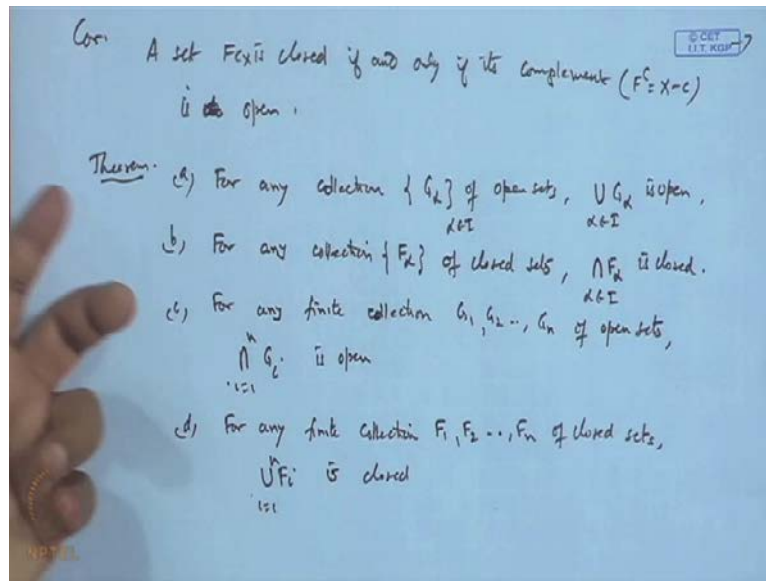 Cor. A set F⊂X is closed if and only if its complement (F^c = X-C)
is open.
© CET
I.I.T. KGP
Theorem. (a) For any collection {G_α}_{α∈I} of open sets, ⋃_{α∈I} G_α is open.
(b) For any collection {F_α} of closed sets, ⋂_{α∈I} F_α is closed.
(c) For any finite collection G_1, G_2 .., G_n of open sets,
⋂_{i=1}^n G_i is open
(d) For any finite collection F_1, F_2 .., F_n of closed sets,
⋃_{i=1}^n F_i is closed
NPTEL